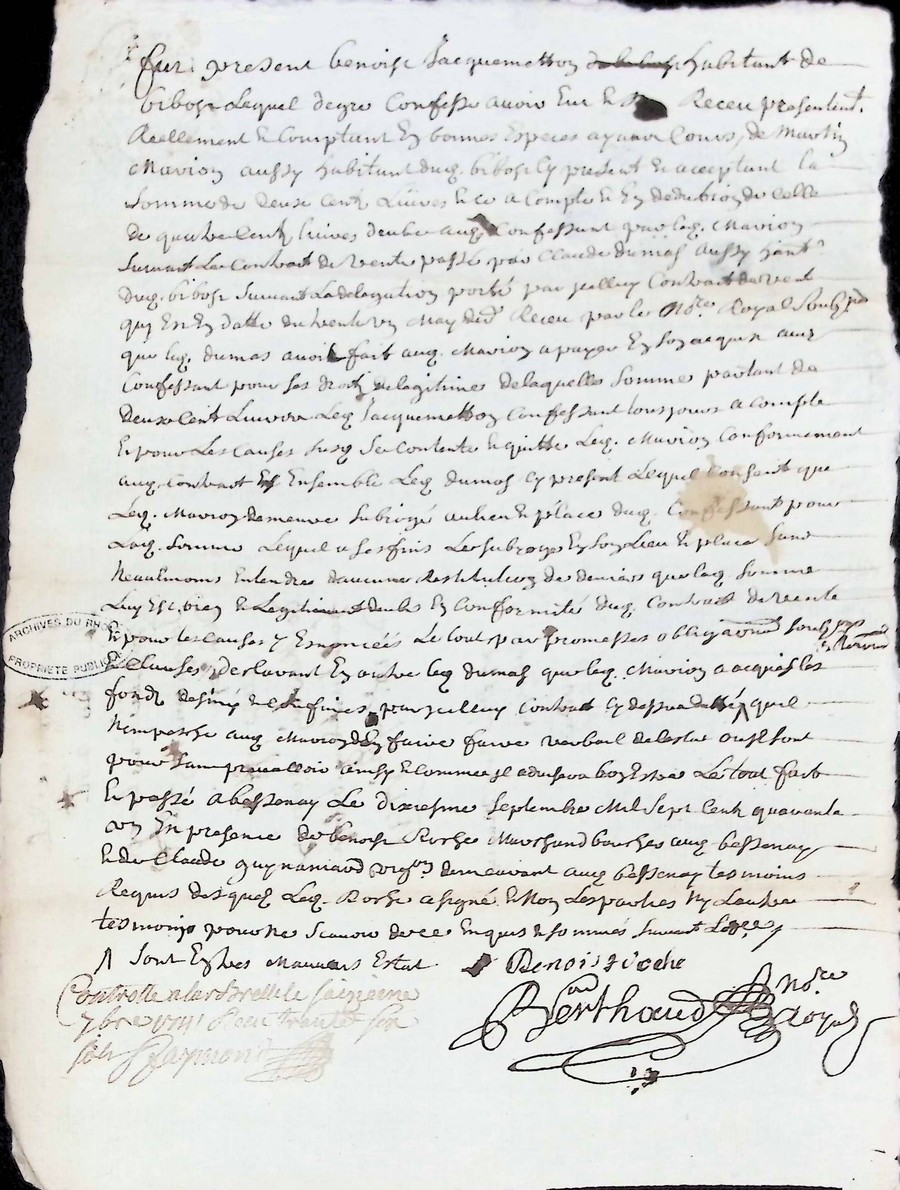 Fut present benoist Jacquemetton habitant de
bibost Lequel de gre Confesse avoir Eut Et Receu presentemt.
Reellement Et Comptant En bonnes Especes ayant Cours, de Martin
Marion aussy habitant dud. bibost Cy present Et acceptant la
Somme de Deux Cent Livres Et ce a Compte Et En deduction de celle
de quatre Cent livres deube aud. Confessant par led. Marion
Suivant Le Contrat de vente passé par Claude dumas aussy hant.
Dud. bibost Suivant La delegation porté par jcelluy Contrat de vente
quy Est En datte du vent May dr. Receu par le Nore. Royal Soubs.
que led. dumas avoit fait aud. Marion a payer En Son acquit aud.
Confessant pour Ses droits de legitime de laquelle Somme partant de
Deux Cent Livres Led. Jacquemetton Confessant tousjours a Compte
Et pour Les causes Susd. Se Contente Et quitte Led. Marion Conformement
aud. Contrat Ensemble Led. dumas Cy present Lequel Consent que
Led. Marion demeure Subrogé au lieu Et place dud. Confessant pour
Lad. Somme Lequel a Ses fins Le Subroge En Son Lieu Et place Sans
Neaulmoins Entendre d'aucune Restitution de deniers que lad. Somme
Luy Est bien Et Legitimement deube En Conformité dud. Contrat de vente
Et pour les causes y Enoncées Le tout par promesses obligaons. Soubs.
Et Clauses, Declarant En outre led. dumas que led. Marion a acquis les
fonds par jcelluy Contrat Cy dessus datté quil
N'empesche aud. Marion d'En faire faire verbail de lestat ou Jl Sont
pour S'en prevalloir ainsy Et Comme Jl advisera bon Estre Le tout fait
Et passé a bessenay Le dixiesme Septembre Mil Sept Cent quarante
En presence de benoist Roche Marchand boucher aud. bessenay
Et de Claude guynamard vigon. demeurant aud. bessenay tesmoins
Requis desquels Led. Roche a Signé Et Non Les parties Ny L'autre
tesmoing pour ne Scavoir de ce Enquis Et Sommés Suivant L'ordce.
Sont En tres Mauvais Estat
Benoist Roche
Berthaud Nore. Royal
Controllé a larbrelle le
7bre Receu
sols Raymond
ARCHIVES DU RHÔNE
PROPRIÉTÉ PUBLIQUE